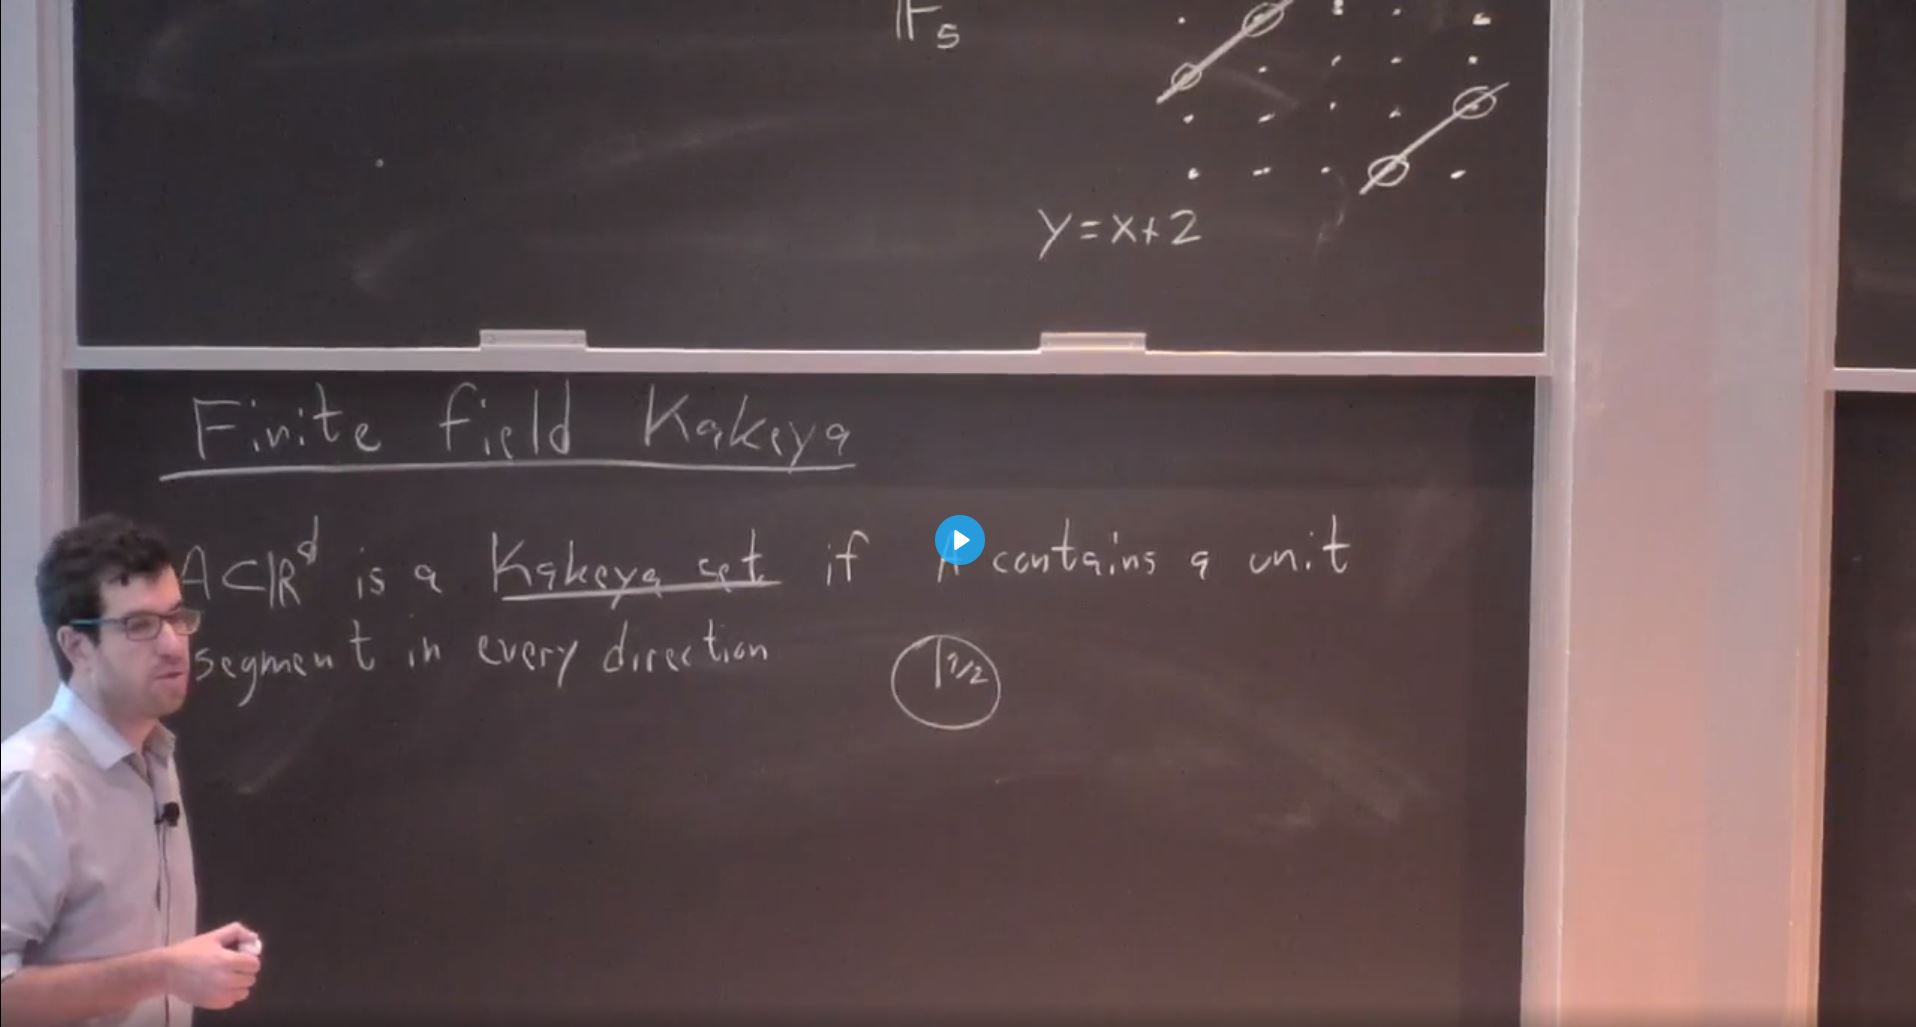 𝔽₅
y=x+2
Finite field Kakeya
A⊂ℝᵈ is a Kakeya set if A contains a unit
segment in every direction
1/2